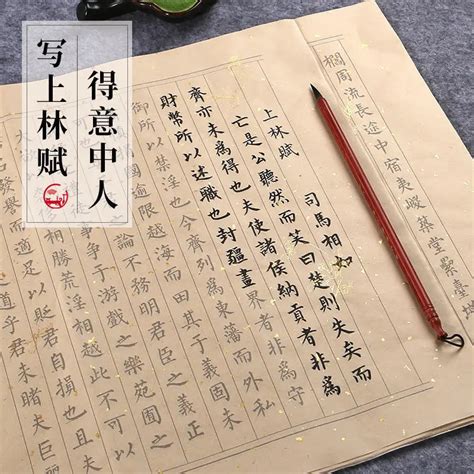 得意中人
写上林赋
櫩周流長途中宿夷嵕築堂累臺
上林賦
司馬相如
亡是公聽然而笑曰楚則失矣而
齊亦未爲得也夫使諸侯納貢者非爲
財幣所以述職也封疆畫界者非爲守
禦所以禁淫也今齊列爲東藩而外私
國逾限越海而田其于義固未
論不務明君臣之義正
爭于游戲之樂苑囿之
相勝荒淫相越此不可以
發譽而適足以貶君自損也且夫
道乎君未睹夫巨麗